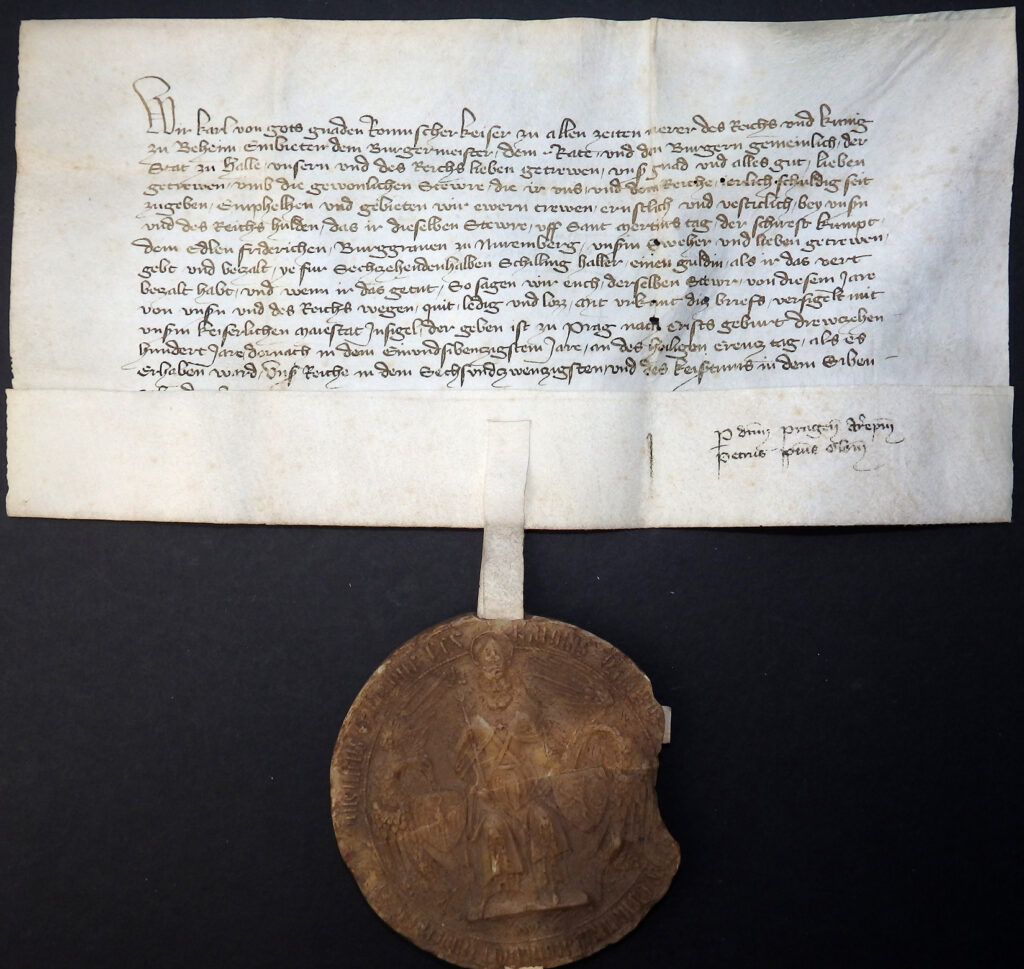 Wir Karl von gots gnaden Romischer keiser zu allen zeiten merer des Reichs und kunig
zu Beheim Embieten dem Burgermeister, dem Rate, und den Burgern gemeinlich, der
Stat zu Halle, unsern und des Reichs lieben getrewen, unsʼ gnad und alles gut, lieben
getrewen, umb die gewonlichen Stewre, die ir uns, und dem Reiche, ierlich schuldig seit
zugeben, Emphelhen und gebieten wir ewern trewen, ernstlich und vesticlich, bey unsn
und des Reichs hulden, das ir dieselben Stewre, uff Sant Mertins tag, der schirest kumpt,
dem Edlen Friderichen, Burggraven zu Nuremberg, unsm sweher und lieben getrewen,
gebt und bezalt, ye fur Sechczehendenhalben Schilling haller, einen guldin, als ir das vert
bezalt habt, und wenn ir das getut, So sagen wir euch, derselben Stewr, von diesem Jare
von unsn und des Reichs wegen, quit, ledig und lozz, mit urkunt dis briefs, versigelt mit
unsm keiserlichen maiestat Insigel, der geben ist zu Prag nach crists geburt drewczehen
hundert Jare dornach in dem Einundsibenzigstem Jare, an des heiligen creucz tag, als es
Erhaben ward, unsʼ Reiche in dem Sechsundzwenzigsten, und des keistums in dem Siben
P dnm Pragen Arepm
Petrus